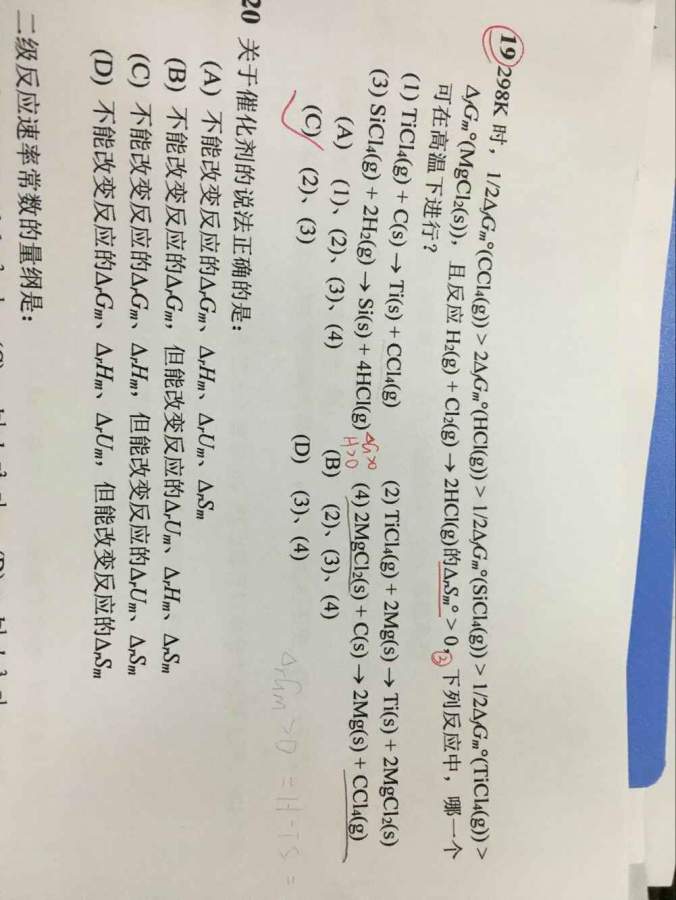 19 298K 时，1/2ΔfGm°(CCl4(g)) > 2ΔfGm°(HCl(g)) > 1/2ΔfGm°(SiCl4(g)) > 1/2ΔfGm°(TiCl4(g)) >
ΔfGm°(MgCl2(s))， 且反应 H2(g) + Cl2(g) → 2HCl(g)的ΔrSm° > 0，② 下列反应中，哪一个
可在高温下进行？
(1) TiCl4(g) + C(s) → Ti(s) + CCl4(g) (2) TiCl4(g) + 2Mg(s) → Ti(s) + 2MgCl2(s)
(3) SiCl4(g) + 2H2(g) → Si(s) + 4HCl(g) ΔG>0 H>0 (4) 2MgCl2(s) + C(s) → 2Mg(s) + CCl4(g)
(A) (1)、(2)、(3)、(4) (B) (2)、(3)、(4)
(C) (2)、(3) (D) (3)、(4)
ΔrGm >0 = H-TS =
20 关于催化剂的说法正确的是：
(A) 不能改变反应的ΔrGm、ΔrHm、ΔrUm、ΔrSm
(B) 不能改变反应的ΔrGm，但能改变反应的ΔrUm、ΔrHm、ΔrSm
(C) 不能改变反应的ΔrGm、ΔrHm，但能改变反应的ΔrUm、ΔrSm
(D) 不能改变反应的ΔrGm、ΔrHm、ΔrUm，但能改变反应的ΔrSm
二级反应速率常数的量纲是：